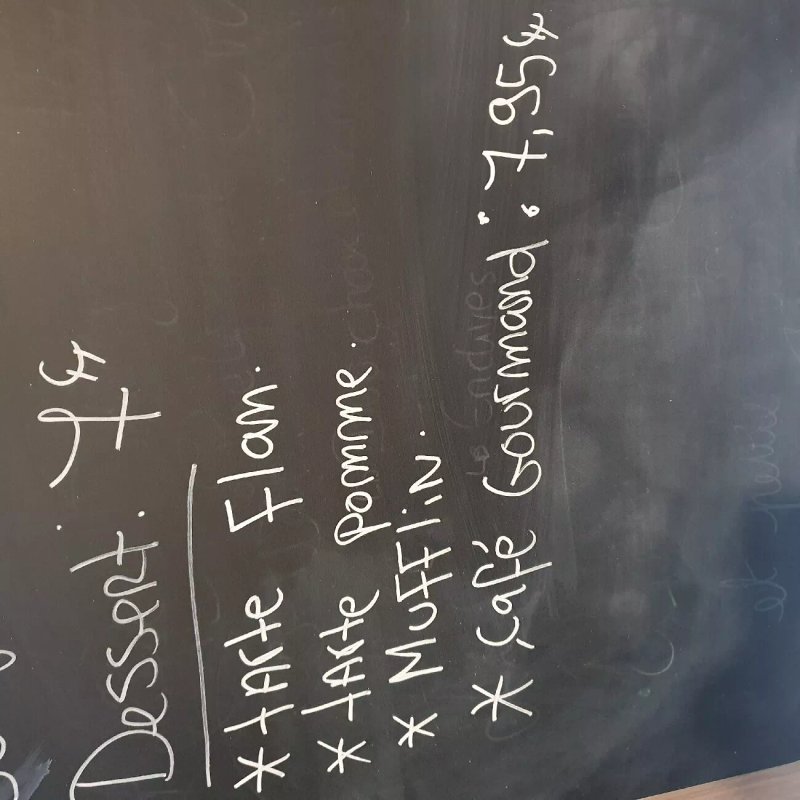 Dessert: 7€
* tarte Flan.
* tarte pomme.
* Mufflin.
* Café Gourmand : 7,95€